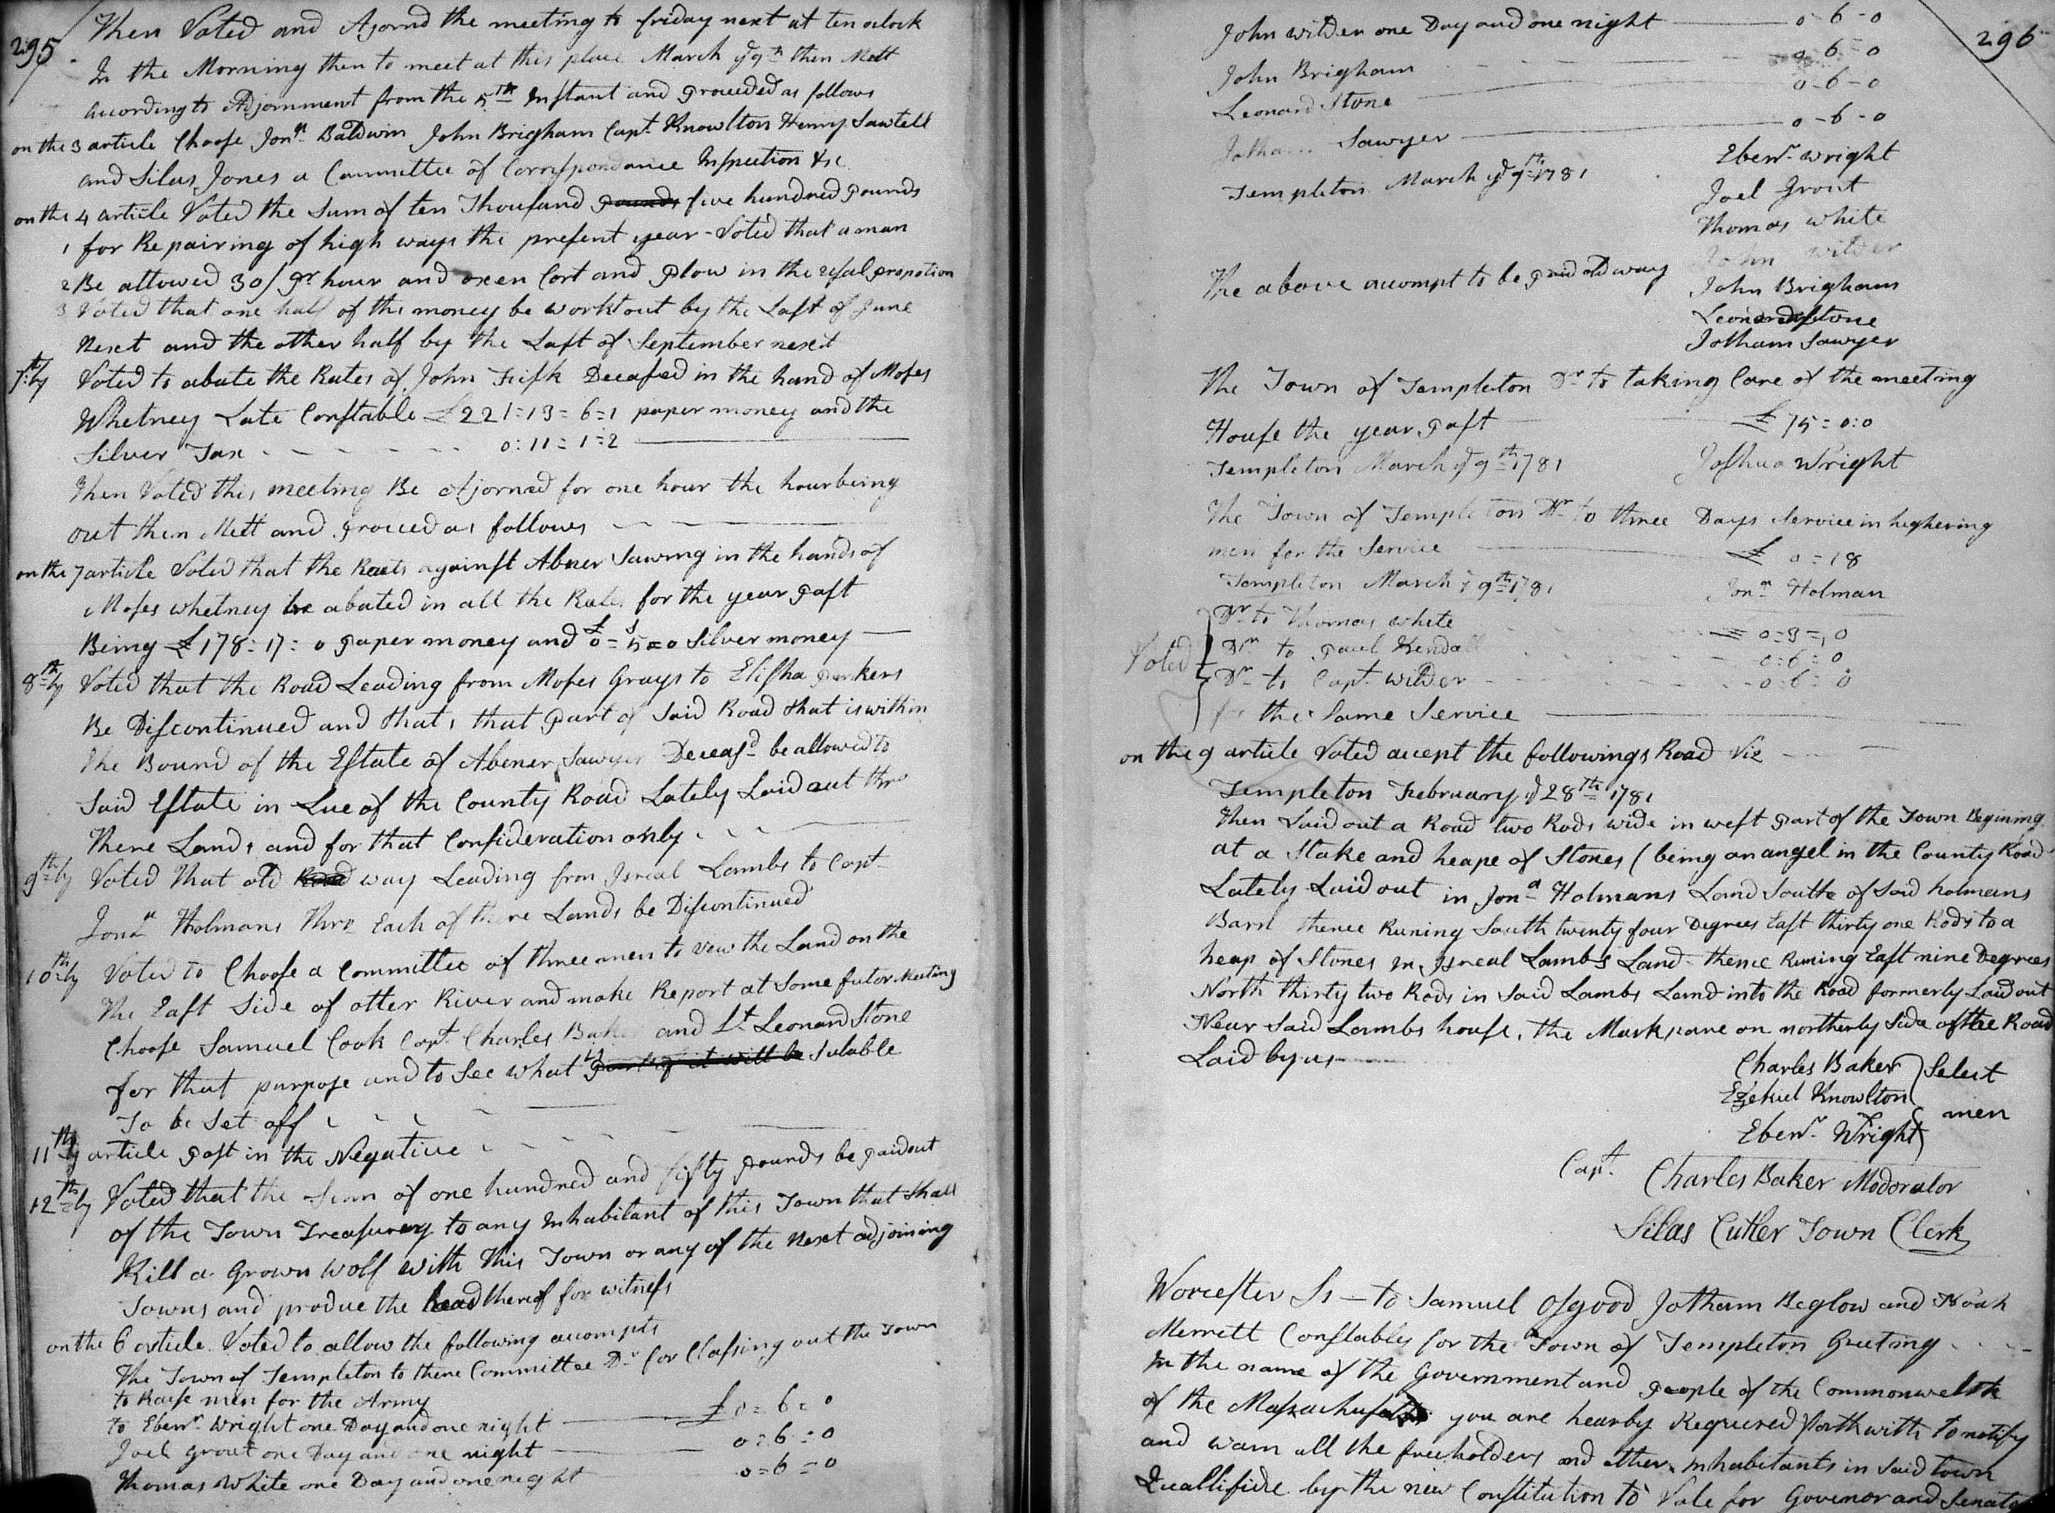 295
Then Voted and Ajornd the meeting to friday next at ten oclock
In the Morning then to meet at this place March ye 9th then Mett
according to Adjornment from the 5th Instant and proceeded as follows
on the 3 article Choose Jonn Baldwin John Brigham Capt. Knowlton Henry Sawtell
and Silas Jones a Committee of Correspondance Inspection &c
on the 4 article Voted the Sum of ten Thousand pounds five hundred pounds
1 for Repairing of high ways the present year - Voted that a man
2 Be allowed 30/ pr hour and oxen Cort and plow in the usal propotion
3 Voted that one half of the money be workt out by the Last of June
Next and the other half by the Last of September next
7thly Voted to abate the Rates of John Fisk Decased in the hand of Moses
Whetney Late Constable £221=13=6=1 paper money and the
Silver Tax - - - - - - 0:11=1=2
Then Voted this meeting Be Ajorned for one hour the hour being
out then Mett and proceed as follows
on the 7 article Voted that the Raets against Abner Sawing in the hands of
Moses whetney be abated in all the Rates for the year past
Being £178:17=0 paper money and £0=5s=0 Silver money
8thly Voted that the Road Leading from Moses Grays to Elisha parkers
Be Discontinued and that, that part of Said Road that is within
the Bound of the Estate of Abener Sawyer Deceasd be allowed to
Said Estate in Lue of the County Road Lately Laid out thro
There Lands and for that Consideration only
9thly Voted that old Road way Leading from Isreal Lambs to Capt
Jonn Holmans thro Each of there Lands be Discontinued
10thly Voted to Choose a Committee of three men to vew the Land on the
the East Side of otter River and make Report at Some futor Meeting
Choose Samuel Cook Capt. Charles Baker and Lt Leonard Stone
for that purpose and to See what part of it will be Sutable
To be Set off
11thly article past in the Negative
12thly Voted that the Sum of one hundred and fifty pounds be paid out
of the Town Treasurey to any Inhabitant of this Town that Shall
Kill a grown wolf with this Town or any of the next adjoining
Towns and produe the head thereof for witness
on the 6 article Voted to allow the following acompts
The Town of Templeton to there Committee Dr for Classing out the Town
to Raise men for the Army
to Ebenr Wright one Day and one night £0=6=0
Joel Grout one Day and one night 0=6=0
Thomas White one Day and one night 0=6=0
296
John wilder one Day and one night 0-6-0
John Brigham 0-6-0
Leonard Stone 0-6-0
Jotham Sawyer 0-6-0
Templeton March ye 9th 1781
Ebenr wright
Joel Grout
Thomas White
John wilder
The above acompt to be paid old way
John Brigham
Leonard Stone
Jotham Sawyer
The Town of Templeton Dr to taking Care of the meeting
House the year past £75=0:0
Templeton March ye 9th 1781 Joshua Wright
The Town of Templeton Dr to three Days Service in highering
men for the Service £0=18
Templeton March ye 9th 1781 Jonn Holman
Dr to Thomas white 0=9=0
Voted Dr to paul Kendall 0=6=0
Dr to Capt. wilder 0=6=0
for the Same Service
on the 9 article Voted acept the followings Road Viz
Templeton February ye 28th 1781
Then Laid out a Road two Rods wide in west part of the Town Begining
at a Stake and heape of Stones (being an angel in the County Road
Lately Laid out in Jonn Holmans Land Southe of Said holmans
Barn thence Runing South twenty four Degrees East thirty one Rods to a
heap of Stones in Isreal Lambs Land thence Runing East nine Degrees
North thirty two Rods in Said Lambs Land into the Road formerly Laid out
Near Said Lambs house, the Marks are on northerly Side of the Road
Laid by us
Charles Baker
Ezekiel Knowlton
Ebenr Wright
Select
men
Capt. Charles Baker Moderator
Silas Cutler Town Clerk
Worcester Ss - to Samuel Osgood Jotham Beglow and Noah
Merrett Constables for the Town of Templeton Greeting
In the name of the Government and people of the Commonwelth
of the Massachusetts you are hearby Required forthwith to notify
and warn all the freeholders and other Inhabitants in Said town
Quallifide by the new Constitution to Vote for Govenor and Senator